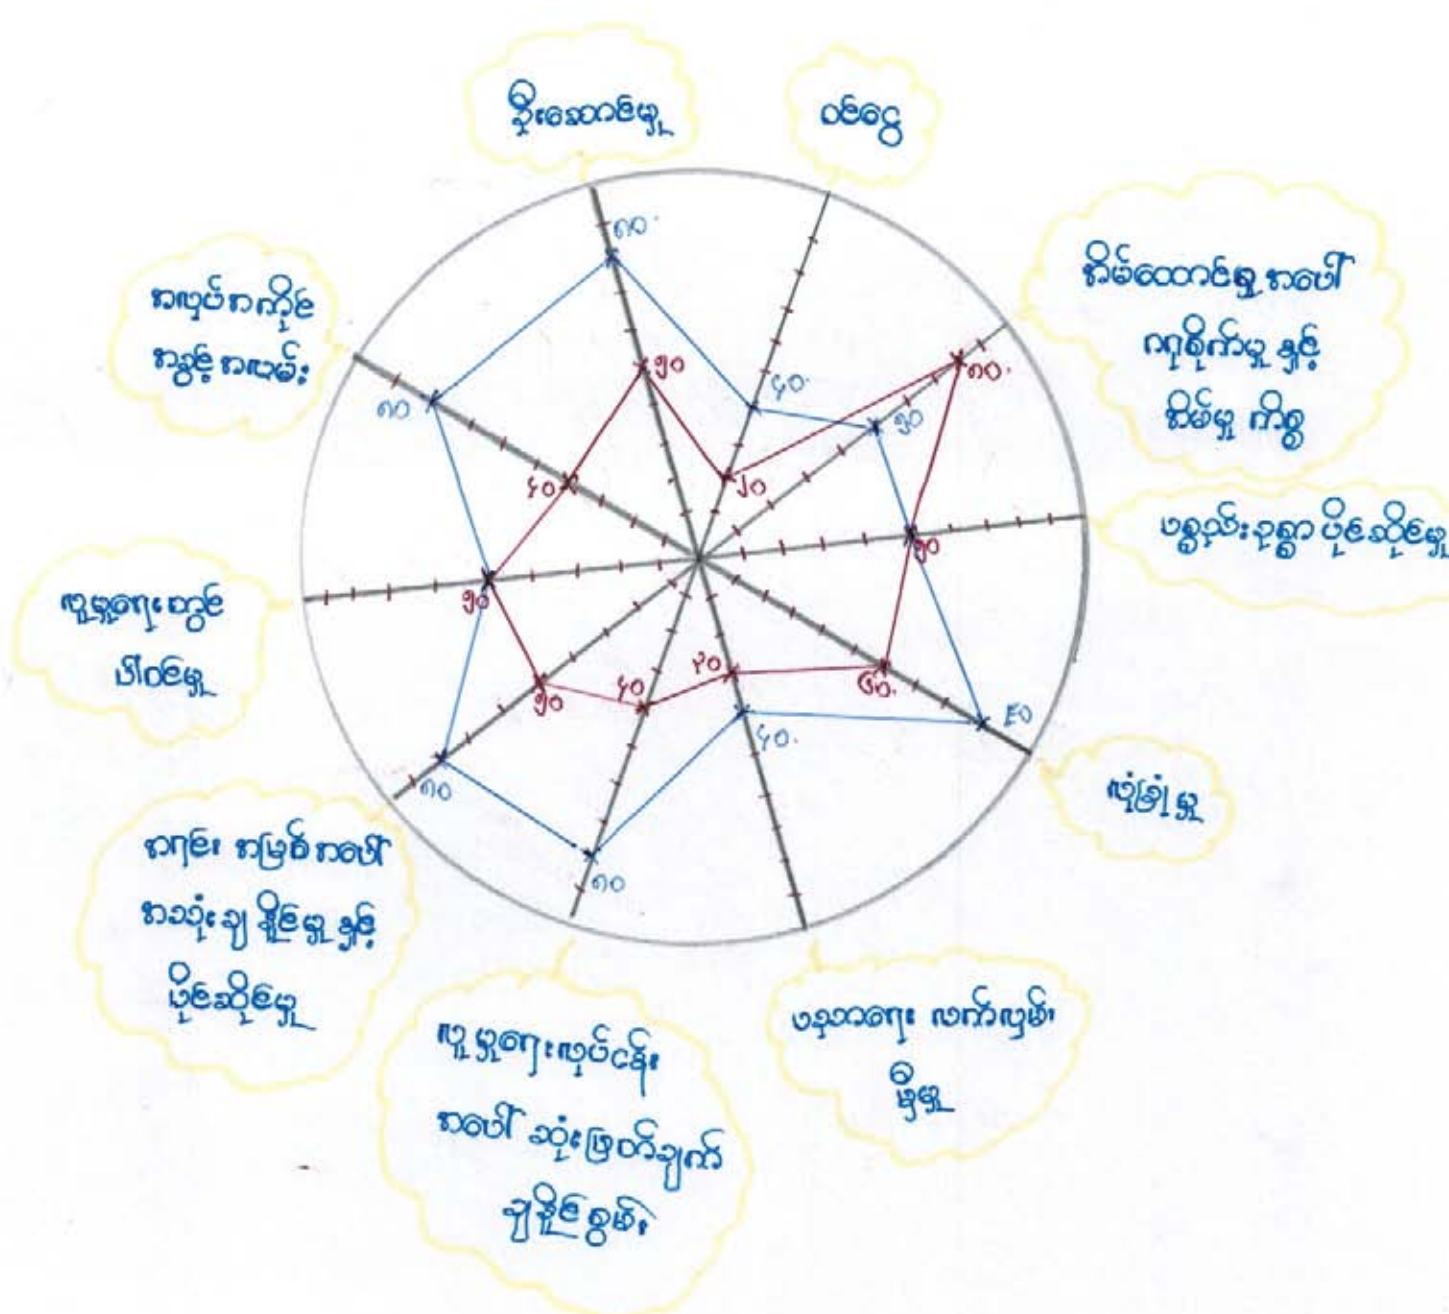 ဦးဆောင်မှု
ဝင်ငွေ
အိမ်ထောင်မှု အပေါ်
ဂရုစိုက်မှု နှင့်
အိမ်မှု ကိစ္စ
ပစ္စည်းဥစ္စာ ပိုင်ဆိုင်မှု
လုံခြုံမှု
ပညာရေး လက်လှမ်း
မှီမှု
လူမှုရေးလုပ်ငန်း
အပေါ် ဆုံးဖြတ်ချက်
ချနိုင်စွမ်း
အရင်း အမြစ်အပေါ်
အသုံးချနိုင်မှု နှင့်
ပိုင်ဆိုင်မှု
လူမှုရေးတွင်
ပါဝင်မှု
အလုပ်အကိုင်
အခွင့်အလမ်း
၈၀
၅၀
၄၀
၂၀
၈၀
၅၀
၅၀
၉၀
၆၀
၃၀
၄၀
၄၀
၈၀
၅၀
၈၀
၅၀
၈၀
၄၀